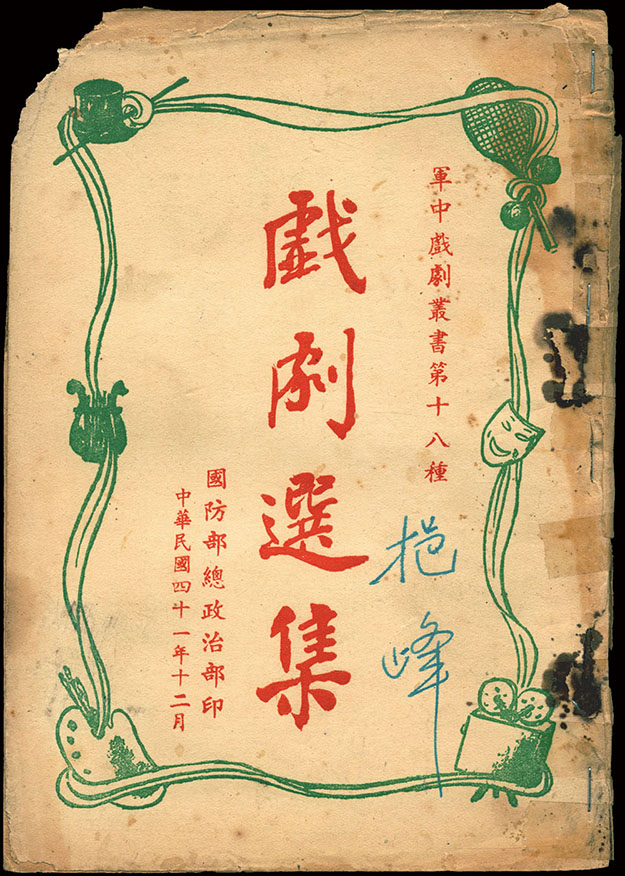 軍中戲劇叢書第十八種
戲劇選集
挹峰
國防部總政治部印
中華民國四十一年十二月